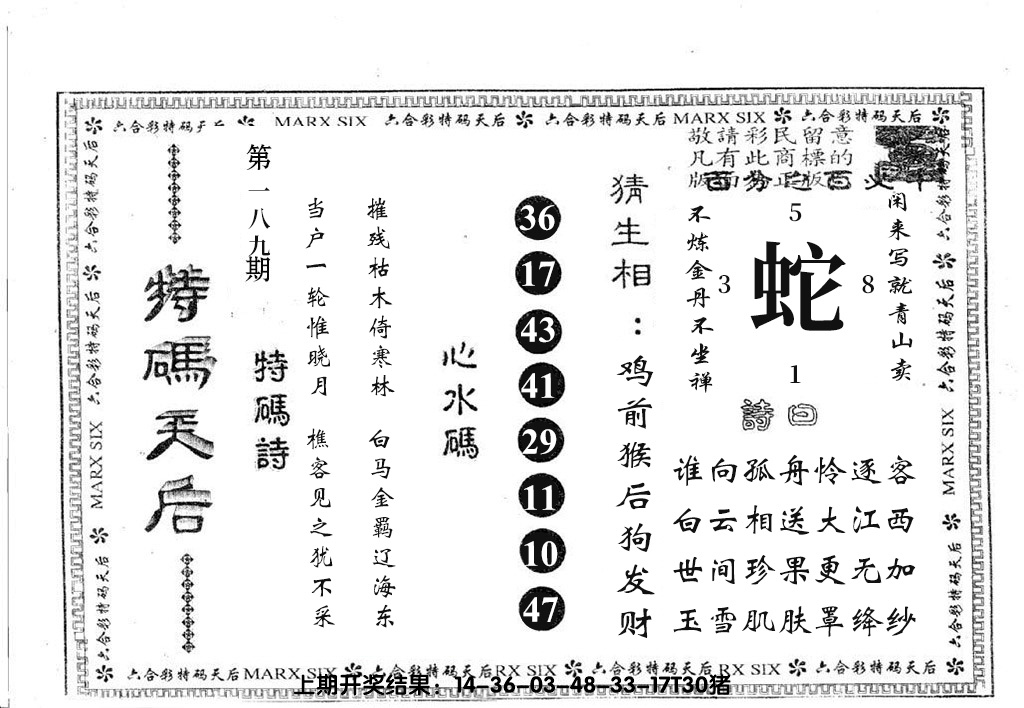 六合彩特码天后 MARX SIX 六合彩特码天后 六合彩特码天后 MARX SIX 六合彩特码天后
敬請彩民留意
凡有此商標的
版面為正版
特碼天后
第一八九期
特碼詩
当户一轮惟晓月 樵客见之犹不采
摧残枯木倚寒林 白马金羁辽海东
心水碼
36
17
43
41
29
11
10
47
猜生相：鸡前猴后狗发财
不炼金丹不坐禅
5
3
蛇
8
1
闲来写就青山卖
詩曰
谁向孤舟怜逐客
白云相送大江西
世间珍果更无加
玉雪肌肤罩绛纱
六合彩特码天后 MARX SIX 六合彩特码天后
六合彩特码天后 六合彩特码天后 MARX SIX
六合彩特码天后MARX SIX 六合彩特码天后RX SIX 六合彩特码天后RX SIX 六合彩特码天后
上期开奖结果：14-36-03-48-33-17T30猪